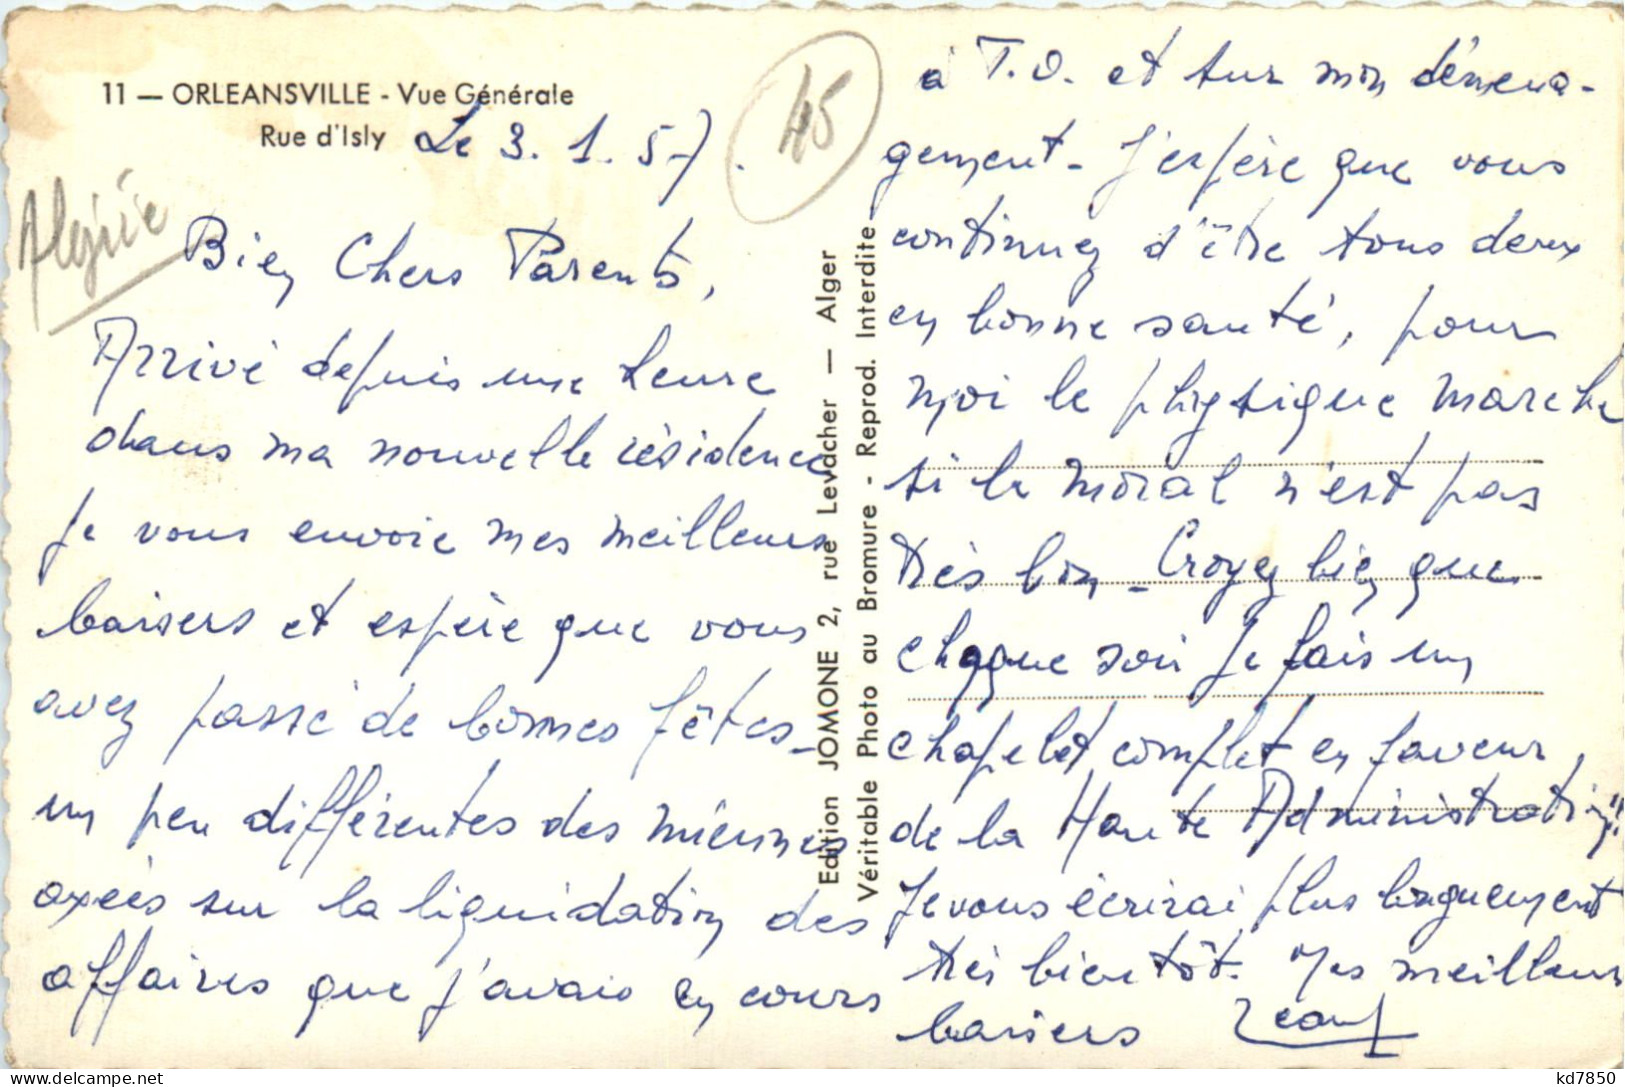 11 — ORLEANSVILLE - Vue Générale
Rue d'Isly
Le 3. 1. 57.
45
Algérie
Bien Chers Parents,
Arrivé depuis une heure
dans ma nouvelle résidence
je vous envoie mes meilleurs
baisers et espère que vous
avez passé de bonnes fêtes -
un peu différentes des miennes
axées sur la liquidation des
affaires que j'avais en cours
Edition JOMONE 2, rue Levacher — Alger
Véritable Photo au Bromure - Reprod. Interdite
à T.O. et sur mon déména-
gement - J'espère que vous
continuez d'être tous deux
en bonne santé, pour
moi le physique marche
si le moral n'est pas
très bon - Croyez bien que
chaque soir je fais un
chapelet complet en faveur
de la "Haute Administration"!
Je vous écrirai plus longuement
très bientôt. Mes meilleurs
baisers
kd7850